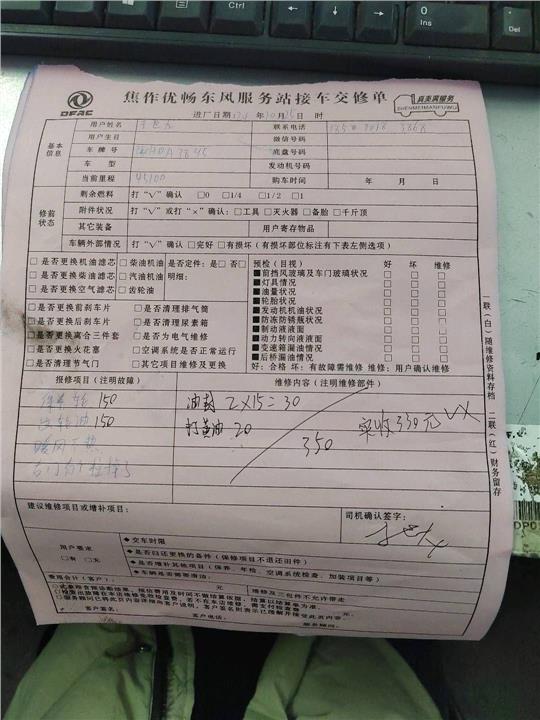 Ins
0
Del
DFAC
焦作优畅东风服务站接车交修单
真美满服务
ZHENMEIMANFUWU
进厂日期 年10月 日 时
基本信息
用户姓名 联系电话
用户生日 微信号码
车牌号 底盘号码
车型 发动机号码
当前里程 45100 购车时间 年 月 日
修前状态
剩余燃料 打“√”确认 □0 □1/4 □1/2 □1
附件状况 打“√”或打“×”确认:□工具 □灭火器 □备胎 □千斤顶
其它装备 用户寄存物品
车辆外部情况 打“√”确认 □完好 □有损坏(有损坏部位标注有下表左侧选项)
□是否更换机油滤芯 □柴油机油 □是否定件:是□ 否□
□是否更换柴油滤芯 □汽油机油 明细:
□是否更换空气滤芯 □齿轮油
□是否更换前刹车片 □是否清理排气筒
□是否更换后刹车片 □是否清理尿素箱
□是否更换离合三件套 □是否为电气维修
□是否更换火花塞 □空调系统是否正常运行
□是否清理节气门 □其它项目修及更换
预检(目视) 好 坏 维修
■前挡风玻璃及车门玻璃状况 □ □ □
■灯具情况 □ □ □
■油量状况 □ □ □
■轮胎状况 □ □ □
■发动机机油状况 □ □ □
■防冻防锈瓶状况 □ □ □
■制动液液面 □ □ □
■动力转向液液面 □ □ □
■变速箱漏油情况 □ □ □
■后桥漏油情况 □ □ □
好:合格 坏:有故障需维修 维修:用户确认维修
报修项目(注明故障) 维修内容(注明维修部件)
150 油封 2×15=30
150 打黄油 20
暖风不热 350 实收330元 VX
建议维修项目或增补项目: 司机确认签字:
用户要求
□有 □无
◆交车时限
◆是否归还更换的备件(保修项目不退还旧件)
◆是否增补其他项目(保养、年检、空调系统检查、加装项目等)
◆车辆是否需要清洁:
费用合计(客户): 元 维修及三包件不允许带走
客户签名: 客户电话: 服务顾问:
一联(白)随维修资料存档 二联(红)财务留存